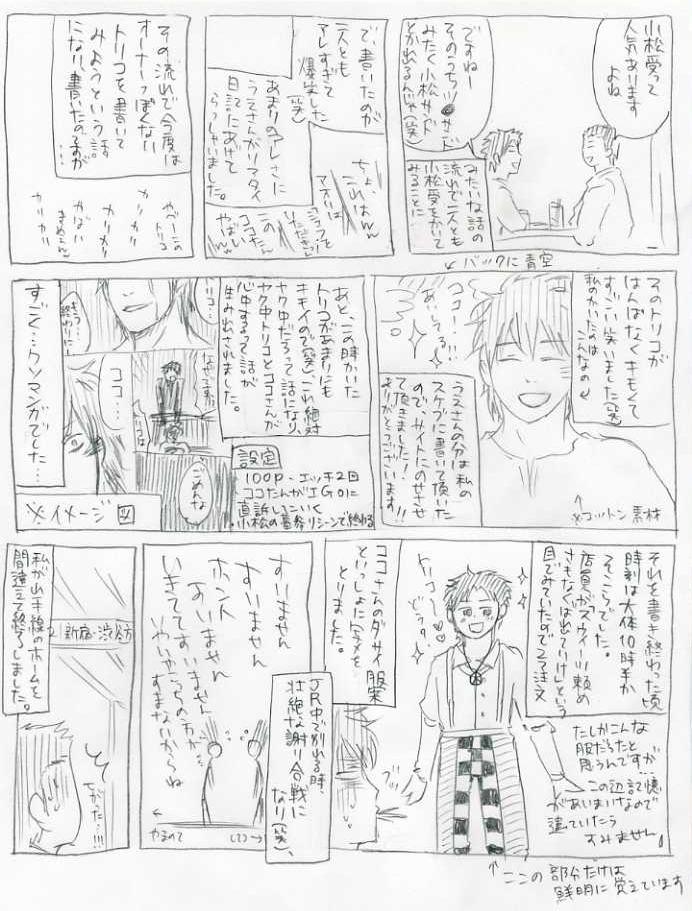 小松受って
人気あります
よね
ですねー
そのうちツ●サンド
みたく小松サンド
とか出るんじゃ(笑)
みたいな話の
流れで二人とも
小松受をかいて
みることに
で、書いたのが
二人とも
アレすぎて
爆笑した
(笑)
あまりのアレさに
うえさんがリアタイ
日記にあげて
らっしゃいました。
ちょ
これはww
この
ココさん
やばい
その流れで今度は
オーナーっぽくない
トリコを書いて
みようという話
になり、書いたのですが
…
やべーこの
トリコ
やばい
きめぇww
カリカリ
カリカリ
↙バックに青空
そのトリコが
はんぱなくキモくて
すごい笑いました(笑)
私のかいたのは
こんなの
ココー!!
あいしてるっ
うえさんの分は私の
スケブに書いて頂いた
ので、サイトにのせさせ
て頂きました!
ありがとうございます!!
↑
※コットン素材
あと、この時かいた
トリコがあまりにも
キモイので(笑)、これ絶対
ヤク中だろって話になり、
ヤク中トリコとココさんが
心中するって話が
生み出されました。
設定
100P・エッチ2回
ココたんがIGOに
直訴しにいく
小松の墓参りシーンで終わる
リコ…
もう…
終わりに…
なぜです
トリコは
ココ…
ごめんな
※イメージ図
すごく…クソマンガでした…
それを書き終わった頃
時刻は大体10時半か
そこらでした。
店員が「スウィーツ頼め
さもなくば出ていけ」という
目でみていたので2て注文
トリコー♡
どう?
たしかこんな
服だったと
思うんですが…
この辺記憶
があいまいなので
違っていたら
すみません
↑ここの部分だけは
鮮明に覚えています
ココさんのダサイ服案
といっしょに写メを
とりました。
JR中で別れる時、
壮絶な謝り合戦に
なり(笑)、
すいません
すいません
ホント
すいません
いきててすいません
いやいやこっちの方が
すまないからね
新宿・渋谷方
ちがった…!!!
私がJR線のホームを
間違えて終了しました。